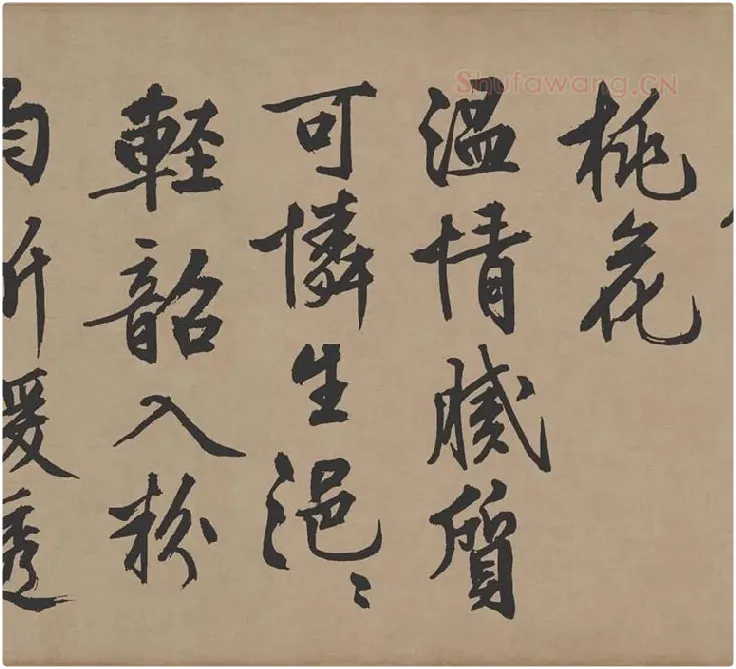 Shufawang.CN
桃花
温情膩質
可憐生浥〻
輕韶入粉
匀新暖透